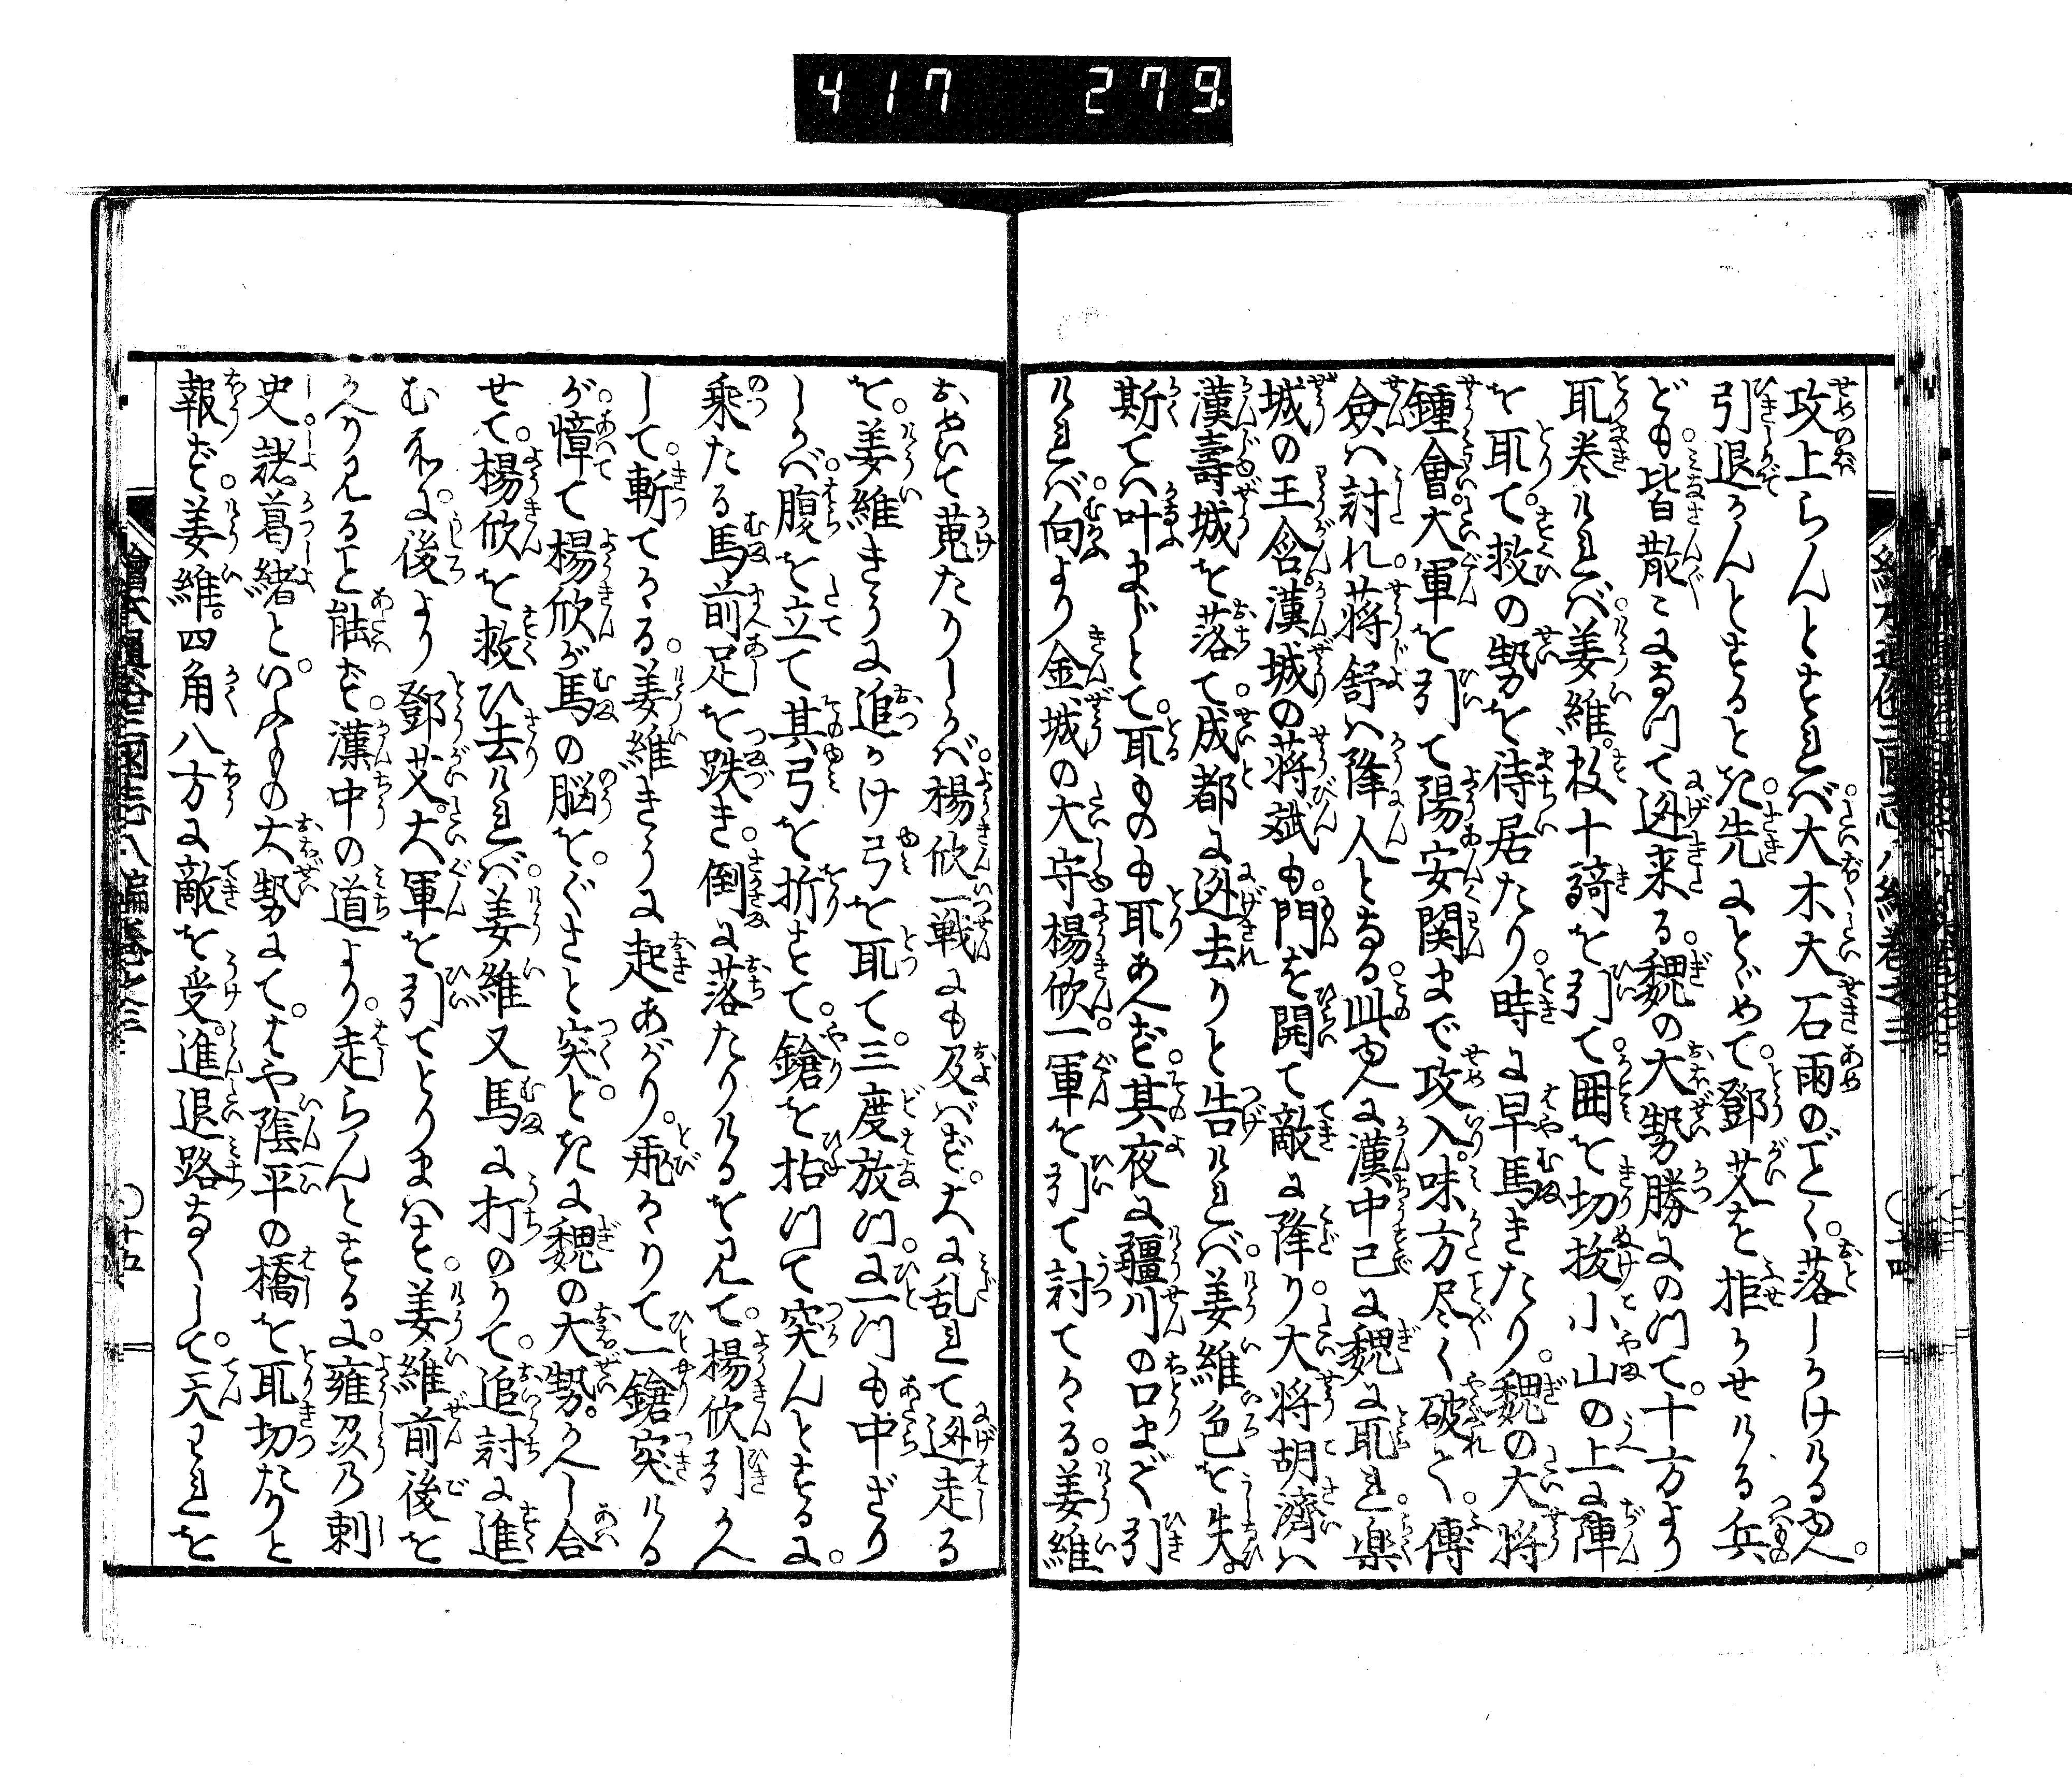 417 279
攻上らんとすれバ大木大石雨のごく落しかけける間
引退かんとすると死先にとゞめて鄧艾を拒かせける兵
ども皆散〻になつて迯来る魏の大勢勝にのつて十方より
取巻ければ姜維数十騎を引て囲を切抜小山の上に陣
を取て救の勢を待居たり時に早馬きたり魏の大将
鍾會大軍を引て陽安関まで攻入味方尽く破〻傅
僉ハ討れ蒋舒ハ降人となる此間に漢中已に魏に取れ楽
城の王含漢城の蒋斌も門を開て敵に降り大将胡濟ハ
漢壽城を落て成都に迯去りと告ければ姜維色を失
斯てハ叶まじとて取ものも取あへず其夜に彊川の口まで引
ければ向より金城の大守楊欣一軍を引て討てかゝる姜維
おめいて蒐たりしかば楊欣一戦にも及ばず大に乱れて迯走る
を姜維きうに追かけ弓を取て三度放つに一つも中ざり
しかば腹を立て其弓を折すて鎗を拈つて突んとするに
乗たる馬前足を跌き倒に落たりけるを見て楊欣引かへ
して斬てかゝる姜維きうに起あがり飛かゝりて一鎗突ける
が愕て楊欣が馬の脳をぐさと突ときに魏の大勢かへし合
せて楊欣を救ひ去ければ姜維又馬に打のりて追討に進
む処に後より鄧艾大軍を引てとりまハす姜維前後を
かへり見ると能ず漢中の道より走らんとするに雍州乃刺
史諸葛緒といふもの大勢にてはや陰平の橋を取切たりと
報ず姜維四角八方に敵を受進退路なくして天われを
繪本通俗三國志八編巻之三
十五